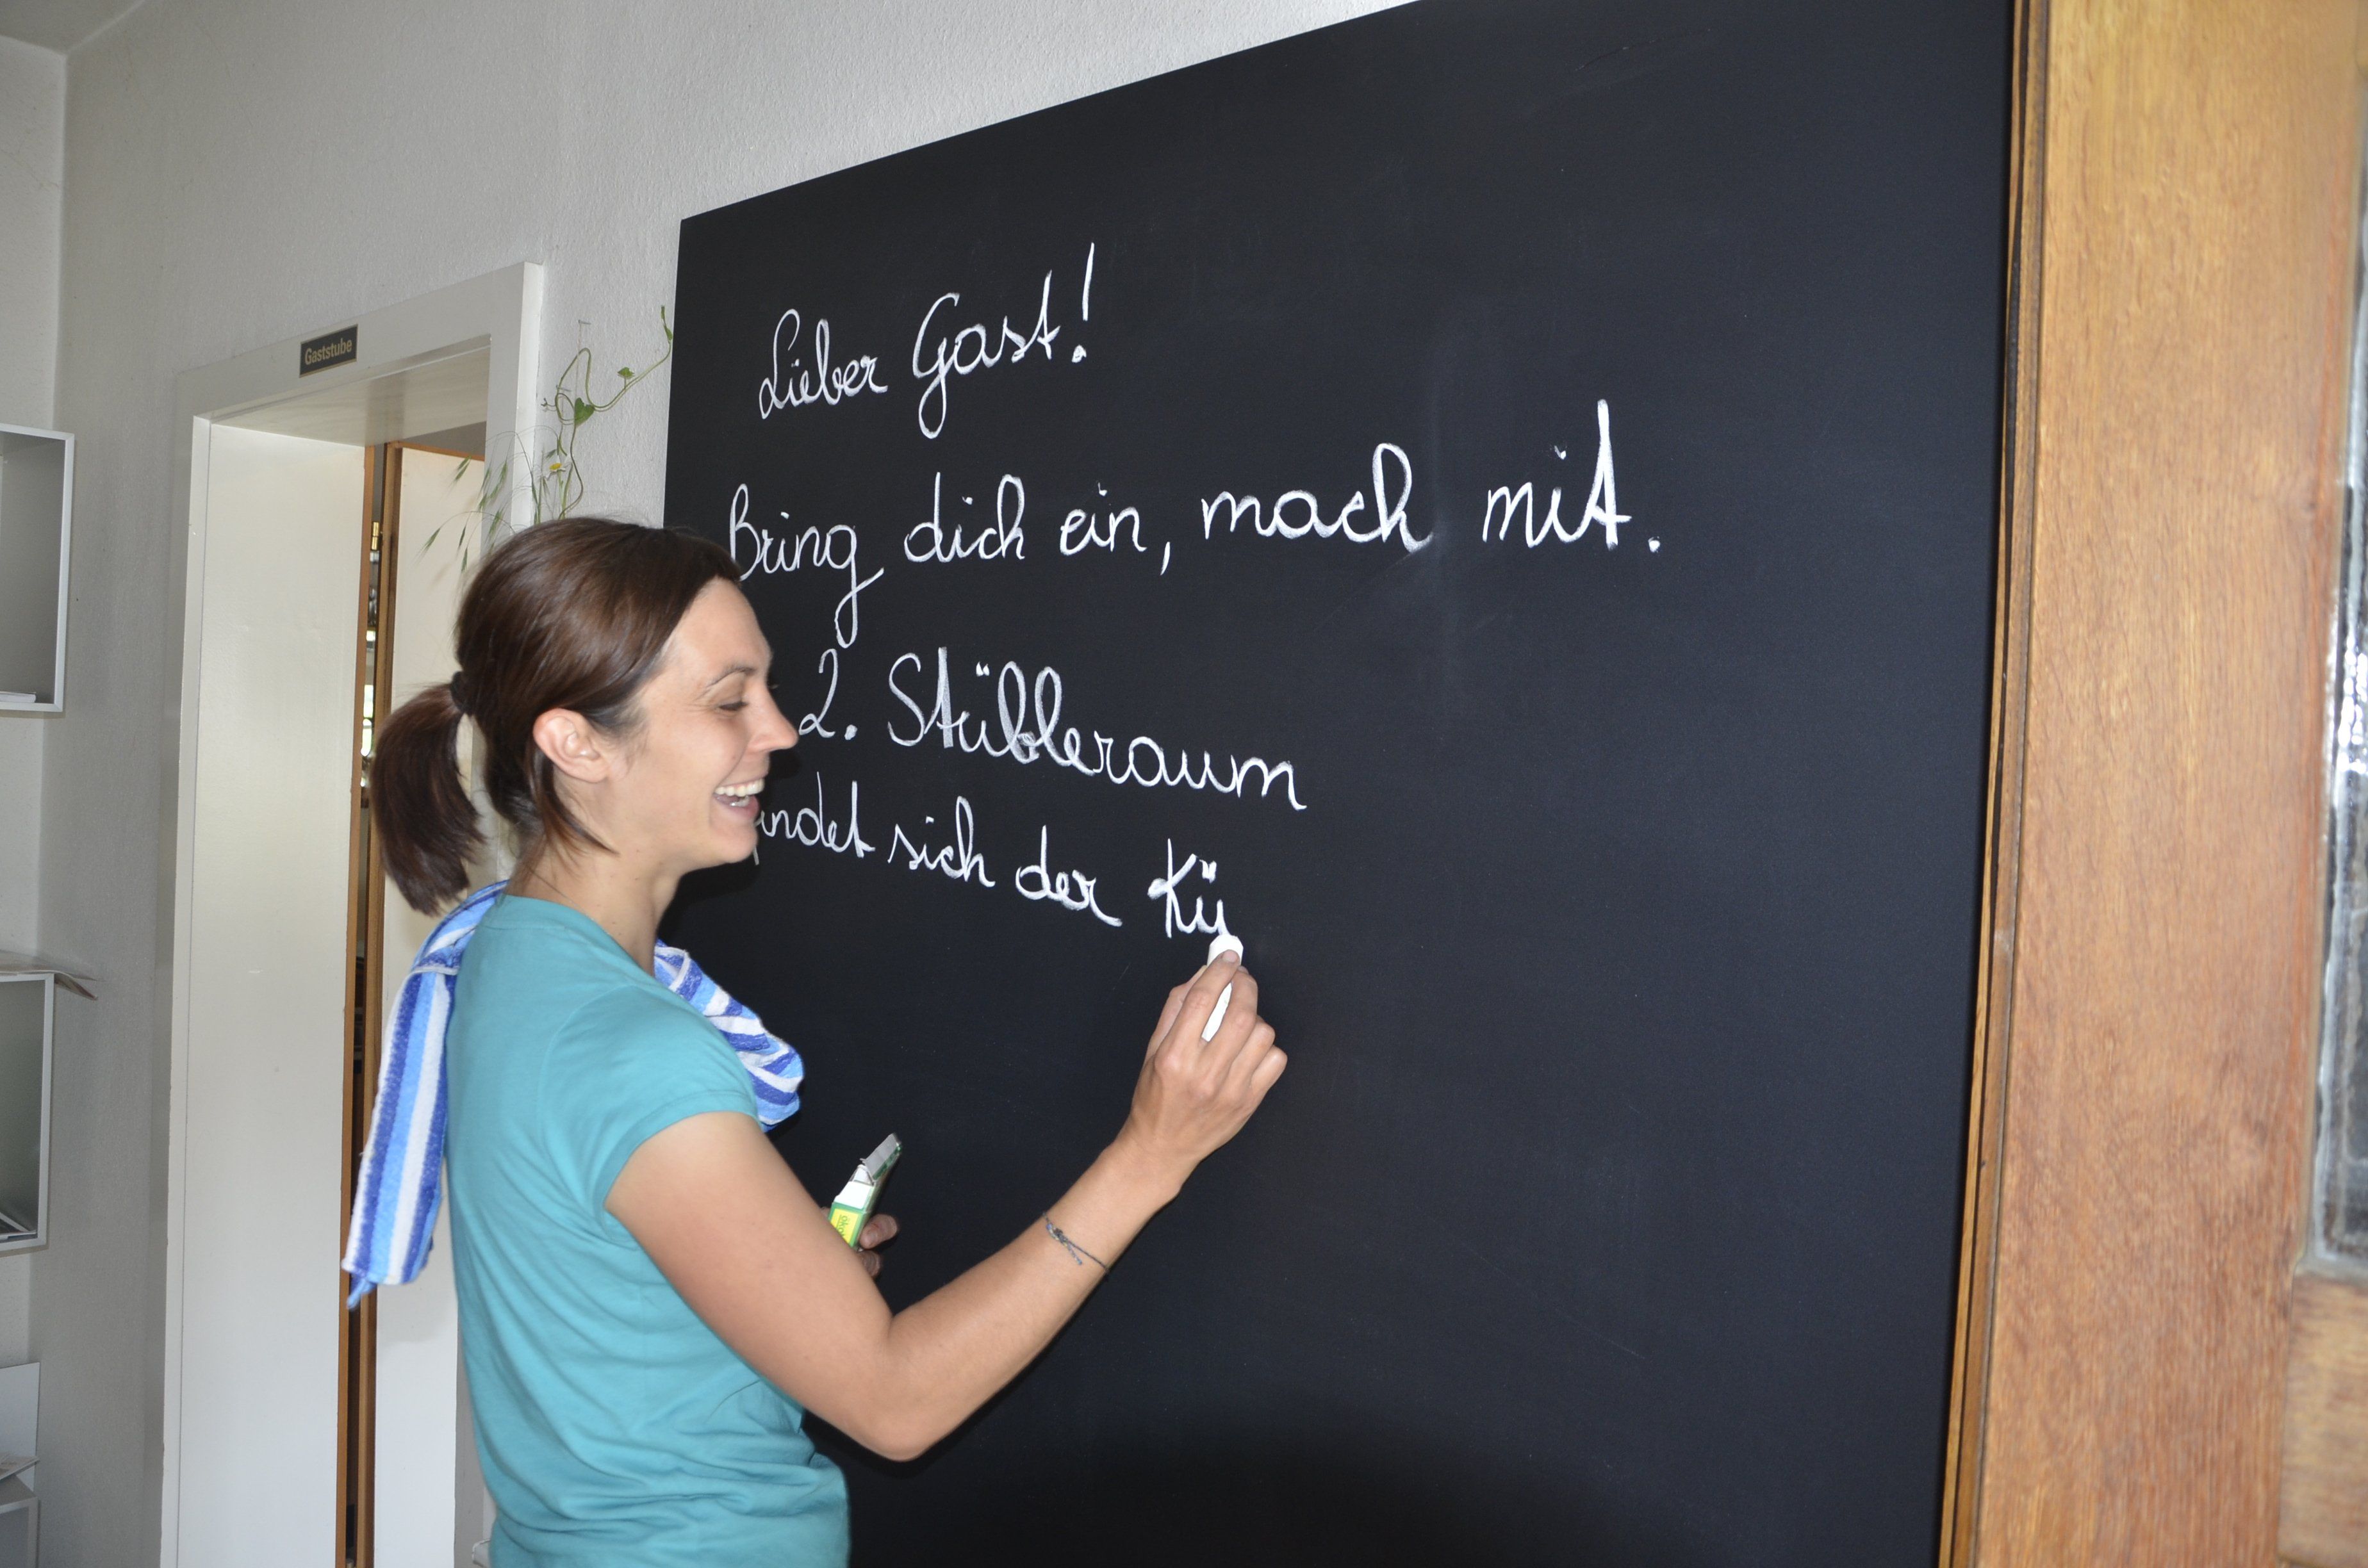 Gaststube
Lieber Gast!
Bring dich ein, mach mit.
2. Stübleraum
sich der Kü